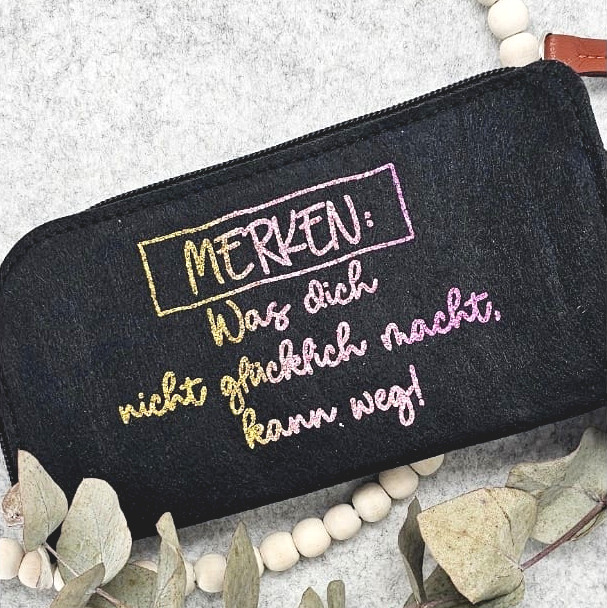 MERKEN:
Was dich
nicht glücklich macht,
kann weg!